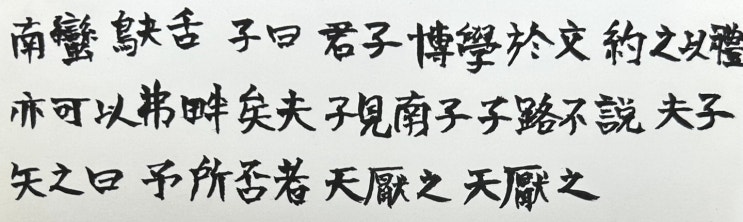 南蠻鴃舌 子曰 君子博學於文 約之以禮
亦可以弗畔矣夫 子見南子 子路不說 夫子
矢之曰 予所否者 天厭之 天厭之